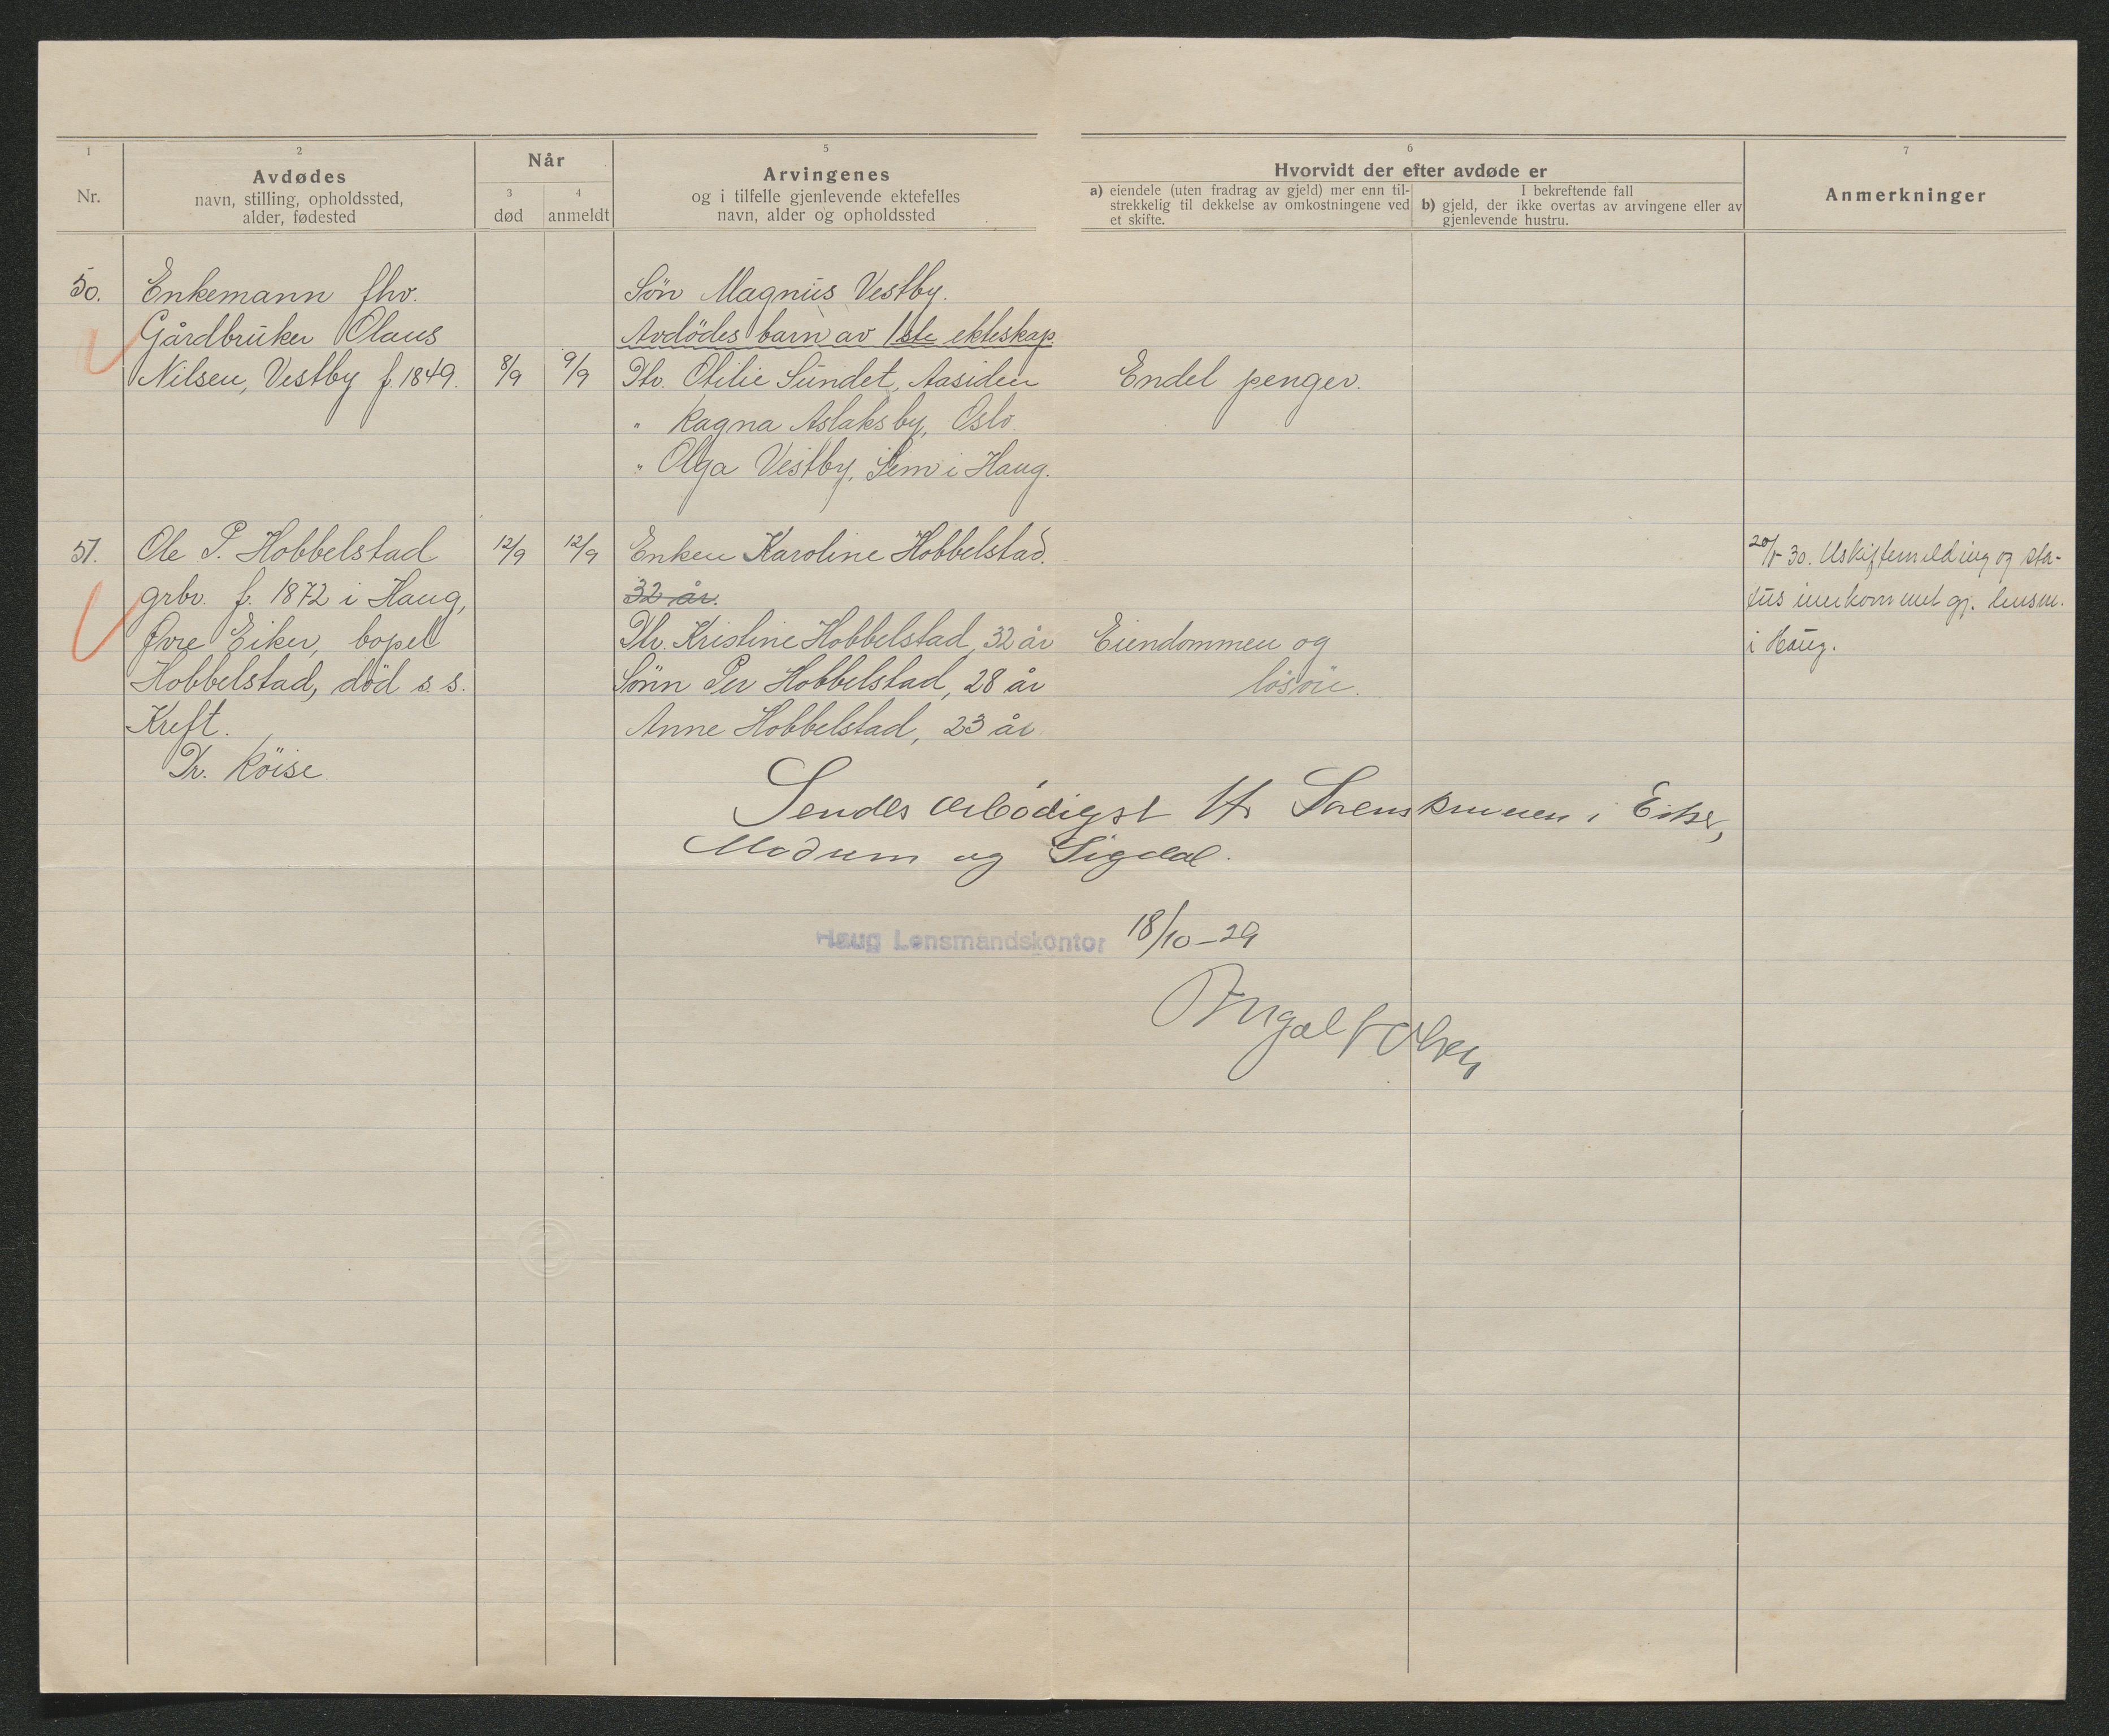 1
Nr.
2
Avdødes
navn, stilling, opholdssted,
alder, fødested
Når
3
død
4
anmeldt
5
Arvingenes
og i tilfelle gjenlevende ektefelles
navn, alder og opholdssted
6
Hvorvidt der efter avdøde er
a) eiendele (uten fradrag av gjeld) mer enn til-
strekkelig til dekkelse av omkostningene ved
et skifte.
I bekreftende fall
b) gjeld, der ikke overtas av arvingene eller av
gjenlevende hustru.
7
Anmerkninger
50.
Enkemann fhv.
Gårdbruker Olaus
Nilsen, Vestby f. 1849.
8/9
9/9
Søn Magnus Vestby.
Avdödes barn av 1ste ekteskap
Dtr. Otilie Sundet, Aasiden
" Ragna Aslaksby, Oslo.
" Olga Vestby, Sem i Haug.
Endel penger.
51.
Ole P. Hobbelstad
grbr. f. 1872 i Haug,
Øvre Eiker, bopel
Hobbelstad, död s. s.
Kreft.
Dr. Röise.
12/9
12/9
Enken Karoline Hobbelstad.
32 år.
Dtr. Kristine Hobbelstad, 32 år
Sönn Per Hobbelstad, 28 år
Anne Hobbelstad, 23 år
Eiendommen og
lösöre.
30. Uskiftemelding og sta-
tus innkommet gj. lensm.
i Haug.
Sendes ærbödigst Hr Sorenskriveren i Eiker,
Modum og Sigdal.
Haug Lensmandskontor 18/10-29
Ingolf Olsen